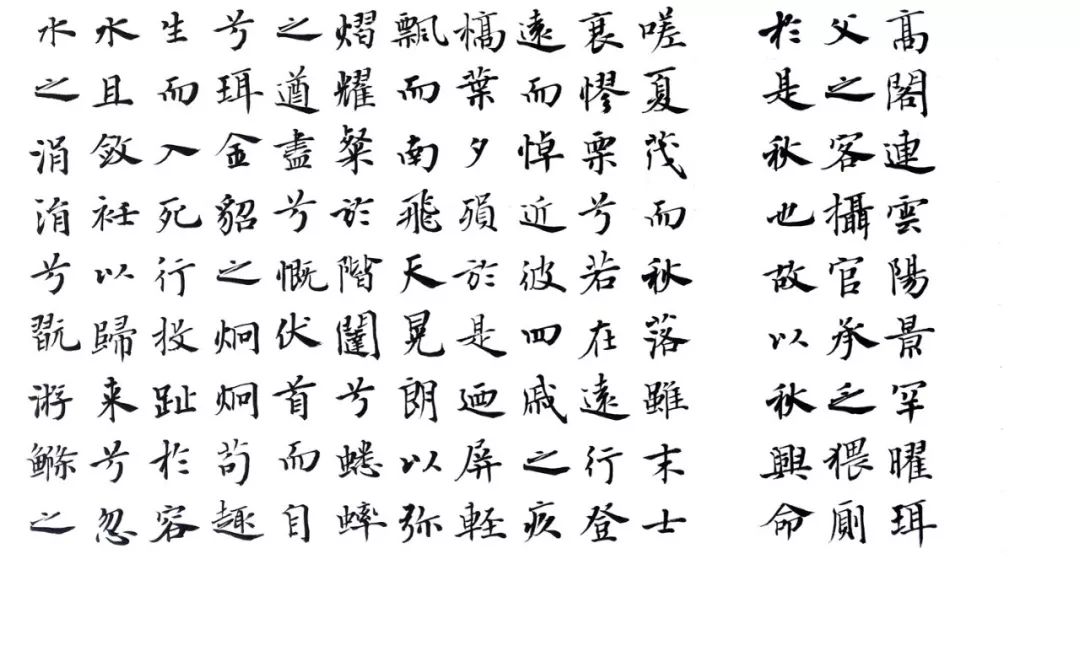 高閣連雲陽景罕曜珥
父之客攝官承乏猥厠
於是秋也故以秋興命
嗟夏茂而秋落雖末士
衰憀栗兮若在遠行登
遠而悼近彼四慼之疚
槁葉夕殞於是迺屏輕
飄而南飛天晃朗以弥
熠耀粲於階闥兮蟋蟀
之遒盡兮慨伏首而自
兮珥金貂之炯炯苟趣
生而入死行投趾於容
水且斂衽以歸来兮忽
水之涓涓兮翫游鯈之